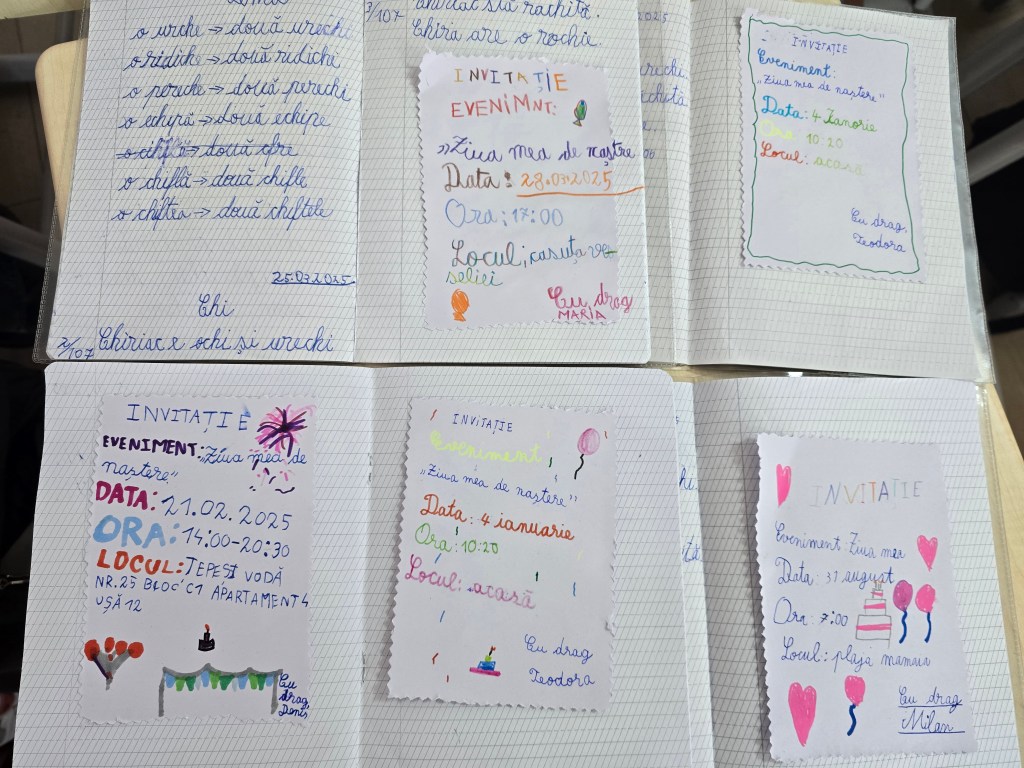 o ureche → două urechi
o ridiche → două ridichi
o pereche → două perechi
o echipă → două echipe
două
o chiflă → două chifle
o chiftea → două chiftele
25.02.2025
Chi
2/107 Chiriac e ochi și urechi
3/107
rachită.
Chira are o rochie.
INVITAȚIE
EVENIMNT:
„Ziua mea de naștre
Data: 28.03.2025
Ora: 17:00
Locul; casuța ve-
seliei
Cu drag
MARIA
2025
INVITAȚIE
Eveniment:
„Ziua mea de naștere”
Data: 4 Ianorie
Ora: 10:20
Locul: acasa
Cu drag,
Teodora
INVITAȚIE
EVENIMENT: „Ziua mea de
naștere”
DATA: 21.02.2025
ORA: 14:00-20:30
LOCUL: ȚEPEȘI VODĂ
NR.25 BLOC C1 APARTAMENT 4
UȘĂ 12
Cu
drag,
Denis
INVITAȚIE
Eveniment
„Ziua mea de naștere”
Data: 4 ianuarie
Ora: 10:20
Locul: acasă
Cu drag
Teodora
hi.
INVITATIE
Eveniment Ziua mea
Data: 31 august
Ora: 7:00
Locul: plaja mamaia
Cu drag
Milan